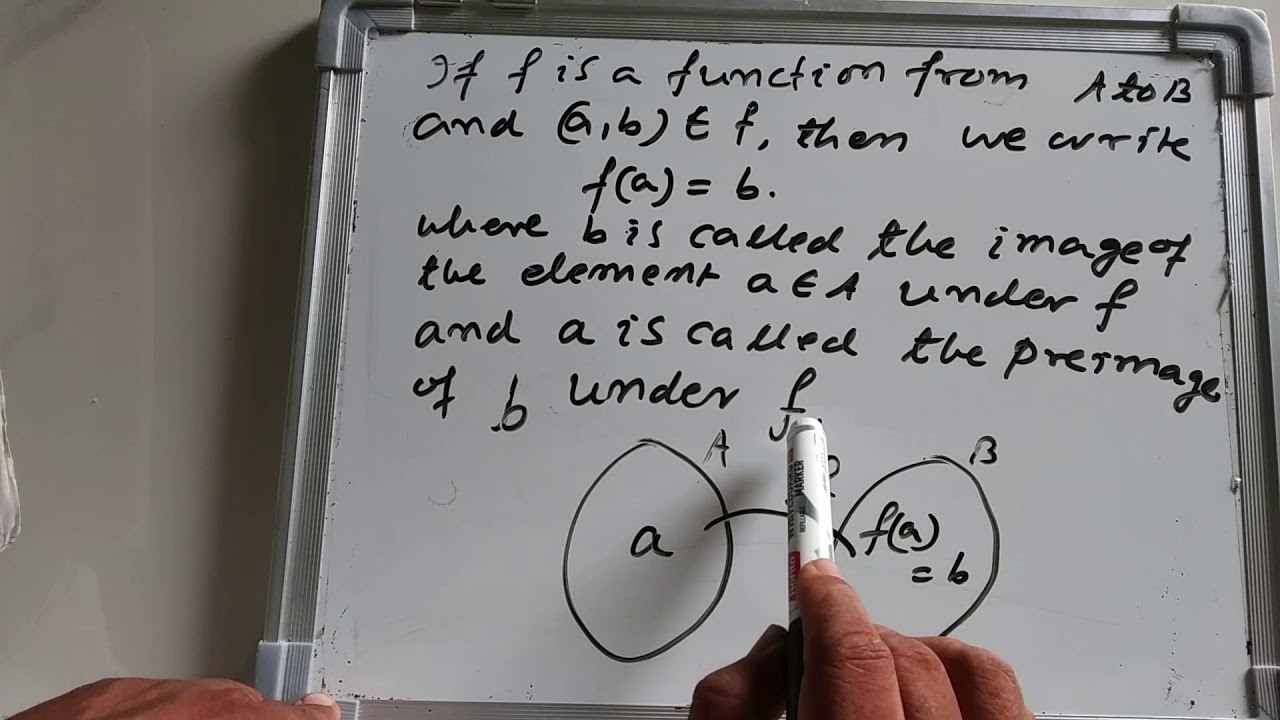 If f is a function from A to B
and (a,b) ∈ f, then we write
f(a) = b.
where b is called the image of
the element a ∈ A under f
and a is called the preimage
of b under f
A
B
a
f(a)
= b
MARKER